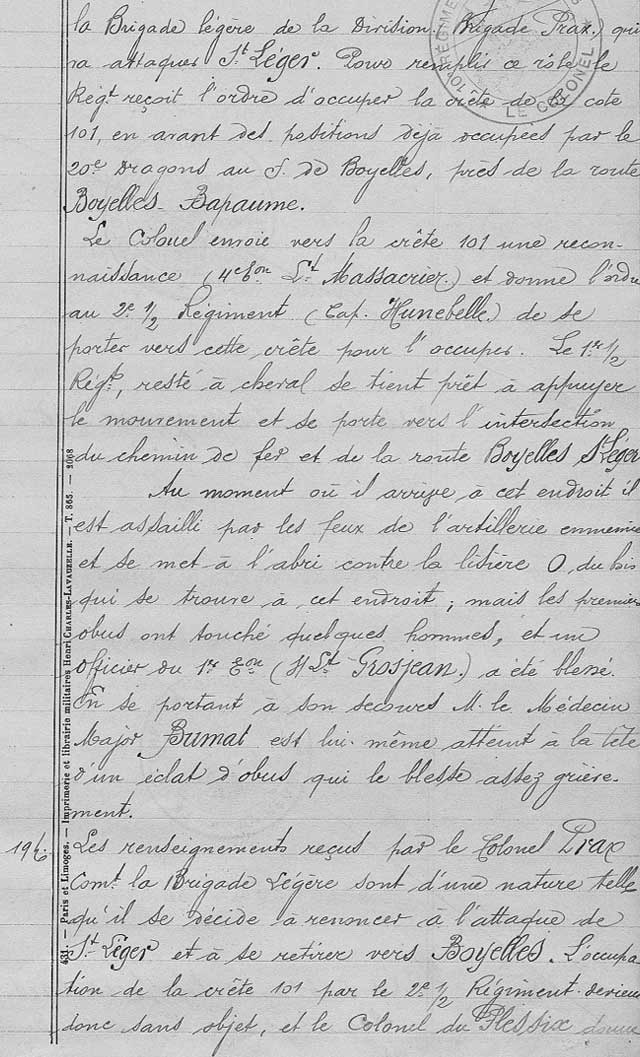 la Brigade légère de la Division. Brigade Prax. qui
va attaquer St Léger. Pour remplir ce rôle le
Régt reçoit l'ordre d'occuper la crête de la cote
101, en avant des positions déjà occupées par le
20e Dragons au S. de Boyelles, près de la route
Boyelles - Bapaume.
Le Colonel envoie vers la crête 101 une recon-
naissance (4e Eon Lt Massacrier.) et donne l'ordre
au 2e 1/2 Régiment (Cap. Hunebelle.) de se
porter vers cette crête pour l'occuper. Le 1er 1/2
Régt, resté à cheval se tient prêt à appuyer
le mouvement et se porte vers l'intersection
du chemin de fer et de la route Boyelles St Léger
Au moment où il arrive à cet endroit il
est assailli par les feux de l'artillerie ennemie
et se met à l'abri contre la lisière O. du bois
qui se trouve à cet endroit ; mais les premiers
obus ont touché quelques hommes, et un
officier du 1er Eon (Lt Grosjean.) a été blessé.
En se portant à son secours M. le Médecin
Major Bumat est lui-même atteint à la tête
d'un éclat d'obus qui le blesse assez griève-
ment.
19h. Les renseignements reçus par le Colonel Prax
Comt la Brigade Légère sont d'une nature telle
qu'il se décide à renoncer à l'attaque de
St Léger et à se retirer vers Boyelles. L'occupa
tion de la crête 101 par le 2e 1/2 Régiment devient
donc sans objet, et le Colonel du Plessix donne
LE COLONEL
431. — Paris et Limoges. — Imprimerie et librairie militaires Henri CHARLES-LAVAUZELLE. — T. 865. — 2068